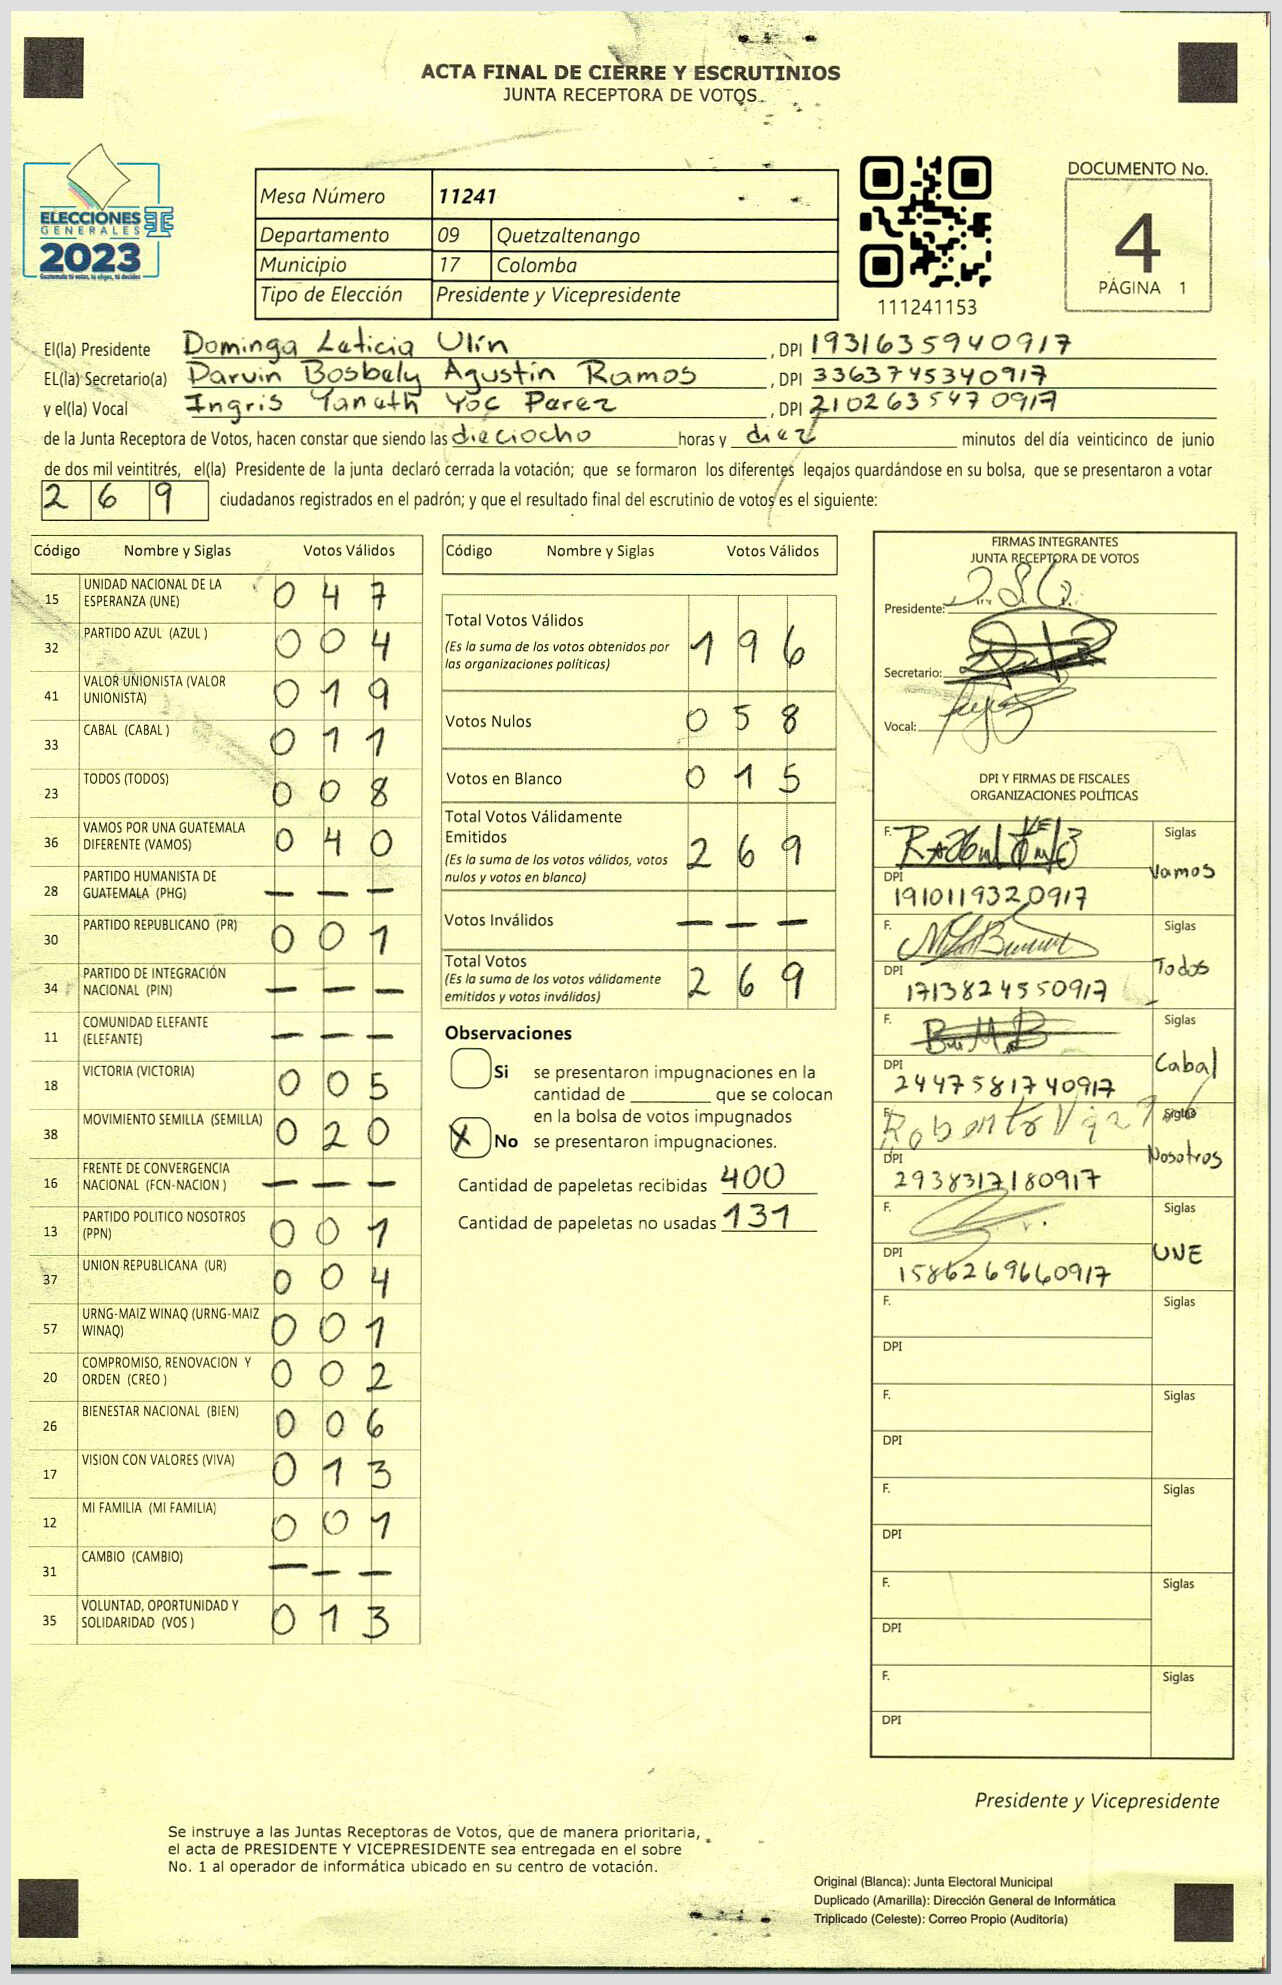 ACTA FINAL DE CIERRE Y ESCRUTINIOS
JUNTA RECEPTORA DE VOTOS
ELECCIONES
GENERALES
2023
Mesa Número 11241
Departamento 09 Quetzaltenango
Municipio 17 Colomba
Tipo de Elección Presidente y Vicepresidente
111241153
DOCUMENTO No.
4
PÁGINA 1
El(la) Presidente Dominga Leticia Ulín, DPI 1931635940917
EL(la) Secretario(a) Darvin Bosbely Agustín Ramos, DPI 3363745340917
y el(la) Vocal Ingris Yaneth Yoc Perez, DPI 2102635470917
de la Junta Receptora de Votos, hacen constar que siendo las dieciocho horas y diez minutos del día veinticinco de junio
de dos mil veintitrés, el(la) Presidente de la junta declaró cerrada la votación; que se formaron los diferentes legajos guardándose en su bolsa, que se presentaron a votar
269 ciudadanos registrados en el padrón; y que el resultado final del escrutinio de votos es el siguiente:
Código Nombre y Siglas Votos Válidos
15 UNIDAD NACIONAL DE LA ESPERANZA (UNE) 0 4 7
32 PARTIDO AZUL (AZUL ) 0 0 4
41 VALOR UNIONISTA (VALOR UNIONISTA) 0 1 9
33 CABAL (CABAL ) 0 1 1
23 TODOS (TODOS) 0 0 8
36 VAMOS POR UNA GUATEMALA DIFERENTE (VAMOS) 0 4 0
28 PARTIDO HUMANISTA DE GUATEMALA (PHG) — — —
30 PARTIDO REPUBLICANO (PR) 0 0 1
34 PARTIDO DE INTEGRACIÓN NACIONAL (PIN) — — —
11 COMUNIDAD ELEFANTE (ELEFANTE) — — —
18 VICTORIA (VICTORIA) 0 0 5
38 MOVIMIENTO SEMILLA (SEMILLA) 0 2 0
16 FRENTE DE CONVERGENCIA NACIONAL (FCN-NACION ) — — —
13 PARTIDO POLITICO NOSOTROS (PPN) 0 0 1
37 UNION REPUBLICANA (UR) 0 0 4
57 URNG-MAIZ WINAQ (URNG-MAIZ WINAQ) 0 0 1
20 COMPROMISO, RENOVACION Y ORDEN (CREO ) 0 0 2
26 BIENESTAR NACIONAL (BIEN) 0 0 6
17 VISION CON VALORES (VIVA) 0 1 3
12 MI FAMILIA (MI FAMILIA) 0 0 1
31 CAMBIO (CAMBIO) — — —
35 VOLUNTAD, OPORTUNIDAD Y SOLIDARIDAD (VOS ) 0 1 3
Código Nombre y Siglas Votos Válidos
Total Votos Válidos 1 9 6
(Es la suma de los votos obtenidos por
las organizaciones políticas)
Votos Nulos 0 5 8
Votos en Blanco 0 1 5
Total Votos Válidamente
Emitidos 2 6 9
(Es la suma de los votos válidos, votos
nulos y votos en blanco)
Votos Inválidos — — —
Total Votos 2 6 9
(Es la suma de los votos válidamente
emitidos y votos inválidos)
Observaciones
Si se presentaron impugnaciones en la
cantidad de ________ que se colocan
en la bolsa de votos impugnados
X No se presentaron impugnaciones.
Cantidad de papeletas recibidas 400
Cantidad de papeletas no usadas 131
FIRMAS INTEGRANTES
JUNTA RECEPTORA DE VOTOS
Presidente:
Secretario:
Vocal:
DPI Y FIRMAS DE FISCALES
ORGANIZACIONES POLÍTICAS
F. Siglas
Vamos
DPI 1910119320917
F. Siglas
Todos
DPI 1713824550917
F. Siglas
Cabal
DPI 2447581740917
F. Roberto Siglas
Nosotros
DPI 2938317180917
F. Siglas
UNE
DPI 1586269660917
F. Siglas
DPI
F. Siglas
DPI
F. Siglas
DPI
F. Siglas
DPI
F. Siglas
DPI
Presidente y Vicepresidente
Se instruye a las Juntas Receptoras de Votos, que de manera prioritaria,
el acta de PRESIDENTE Y VICEPRESIDENTE sea entregada en el sobre
No. 1 al operador de informática ubicado en su centro de votación.
Original (Blanca): Junta Electoral Municipal
Duplicado (Amarilla): Dirección General de Informática
Triplicado (Celeste): Correo Propio (Auditoría)